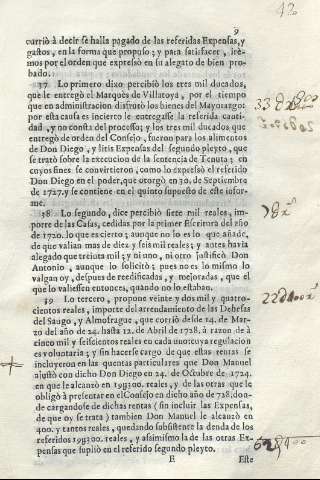 9
currió à decir se halla pagado de las referidas Expensas, y
gastos, en la forma que propuso; y para satisfacer, irè-
mos por el orden que expressò en su alegato de bien pro-
bado.
37 Lo primero dixo percibiò los tres mil ducados,
que le entregò el Marquès de Villatoya, por el tiempo
que en administracion disfrutò los bienes del Mayorazgo:
por esta causa es incierto le entregasse la referida canti-
dad, y no consta del processo; y los tres mil ducados que
entregò de orden del Consejo, fueron para los alimentos
de Don Diego, y litis Expensas del segundo pleyto, que
se tratò sobre la execucion de la sentencia de Tenuta; en
cuyos fines se convirtieron, como lo expressò el referido
Don Diego en el poder, que otorgò en 30. de Septiembre
de 1727. y se contiene en el quinto supuesto de este infor-
me.
38. Lo segundo, dice percibiò siete mil reales, im-
porte de las Casas, cedidas por la primer Escritura del año
de 1720. lo que es cierto; aunque no lo es lo que añade,
de que valian mas de diez y seis mil reales; y antes havia
alegado que treinta mil; y ni uno, ni otro justificò Don
Antonio, aunque lo solicitò; pues no es lo mismo lo
valgan oy, despues de reedificadas, y mejoradas, que el
que lo valiessen entonces, quando no lo estaban.
39 Lo tercero, propone veinte y dos mil y quatro-
cientos reales, importe del arrendamiento de las Debesas
del Saugo, y Almofrague, que corriò desde 14. de Mar-
zo del año de 24. hasta 12. de Abril de 1728. à razon de à
cinco mil y seiscientos reales en cada uno: cuya regulacion
es voluntaria; y sin hacerse cargo de que estas rentas se
incluyeron en las quentas particulares que Don Manuel
ajustò con dicho Don Diego en 24. de Octubre de 1724.
en que le alcanzò en 19j300. reales, y de las otras que le
obligò à presentar en el Consejo en dicho año de 728. don-
de cargandose de dichas rentas (sin incluir las Expensas,
de que oy se trata) tambien Don Manuel le alcanzò en
400. y tantos reales, quedando subsistente la denda de los
referidos 19j300. reales, y assimismo la de las otras Ex-
pensas que supliò en el referido segundo pleyto.
E Este